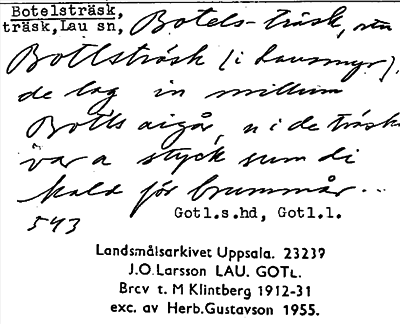 Botelsträsk,
träsk, Lau sn,
Botels-träsk,
Bottsträsk (i Lausmyr),
de lag in millum
Botts aigår, u i de träsk
var a styck sum di
kald för brummår...
543
Gotl.s.hd, Gotl.l.
Landsmålsarkivet Uppsala. 23239
J.O.Larsson LAU. GOTL.
Brev t. M Klintberg 1912-31
exc. av Herb.Gustavson 1955.